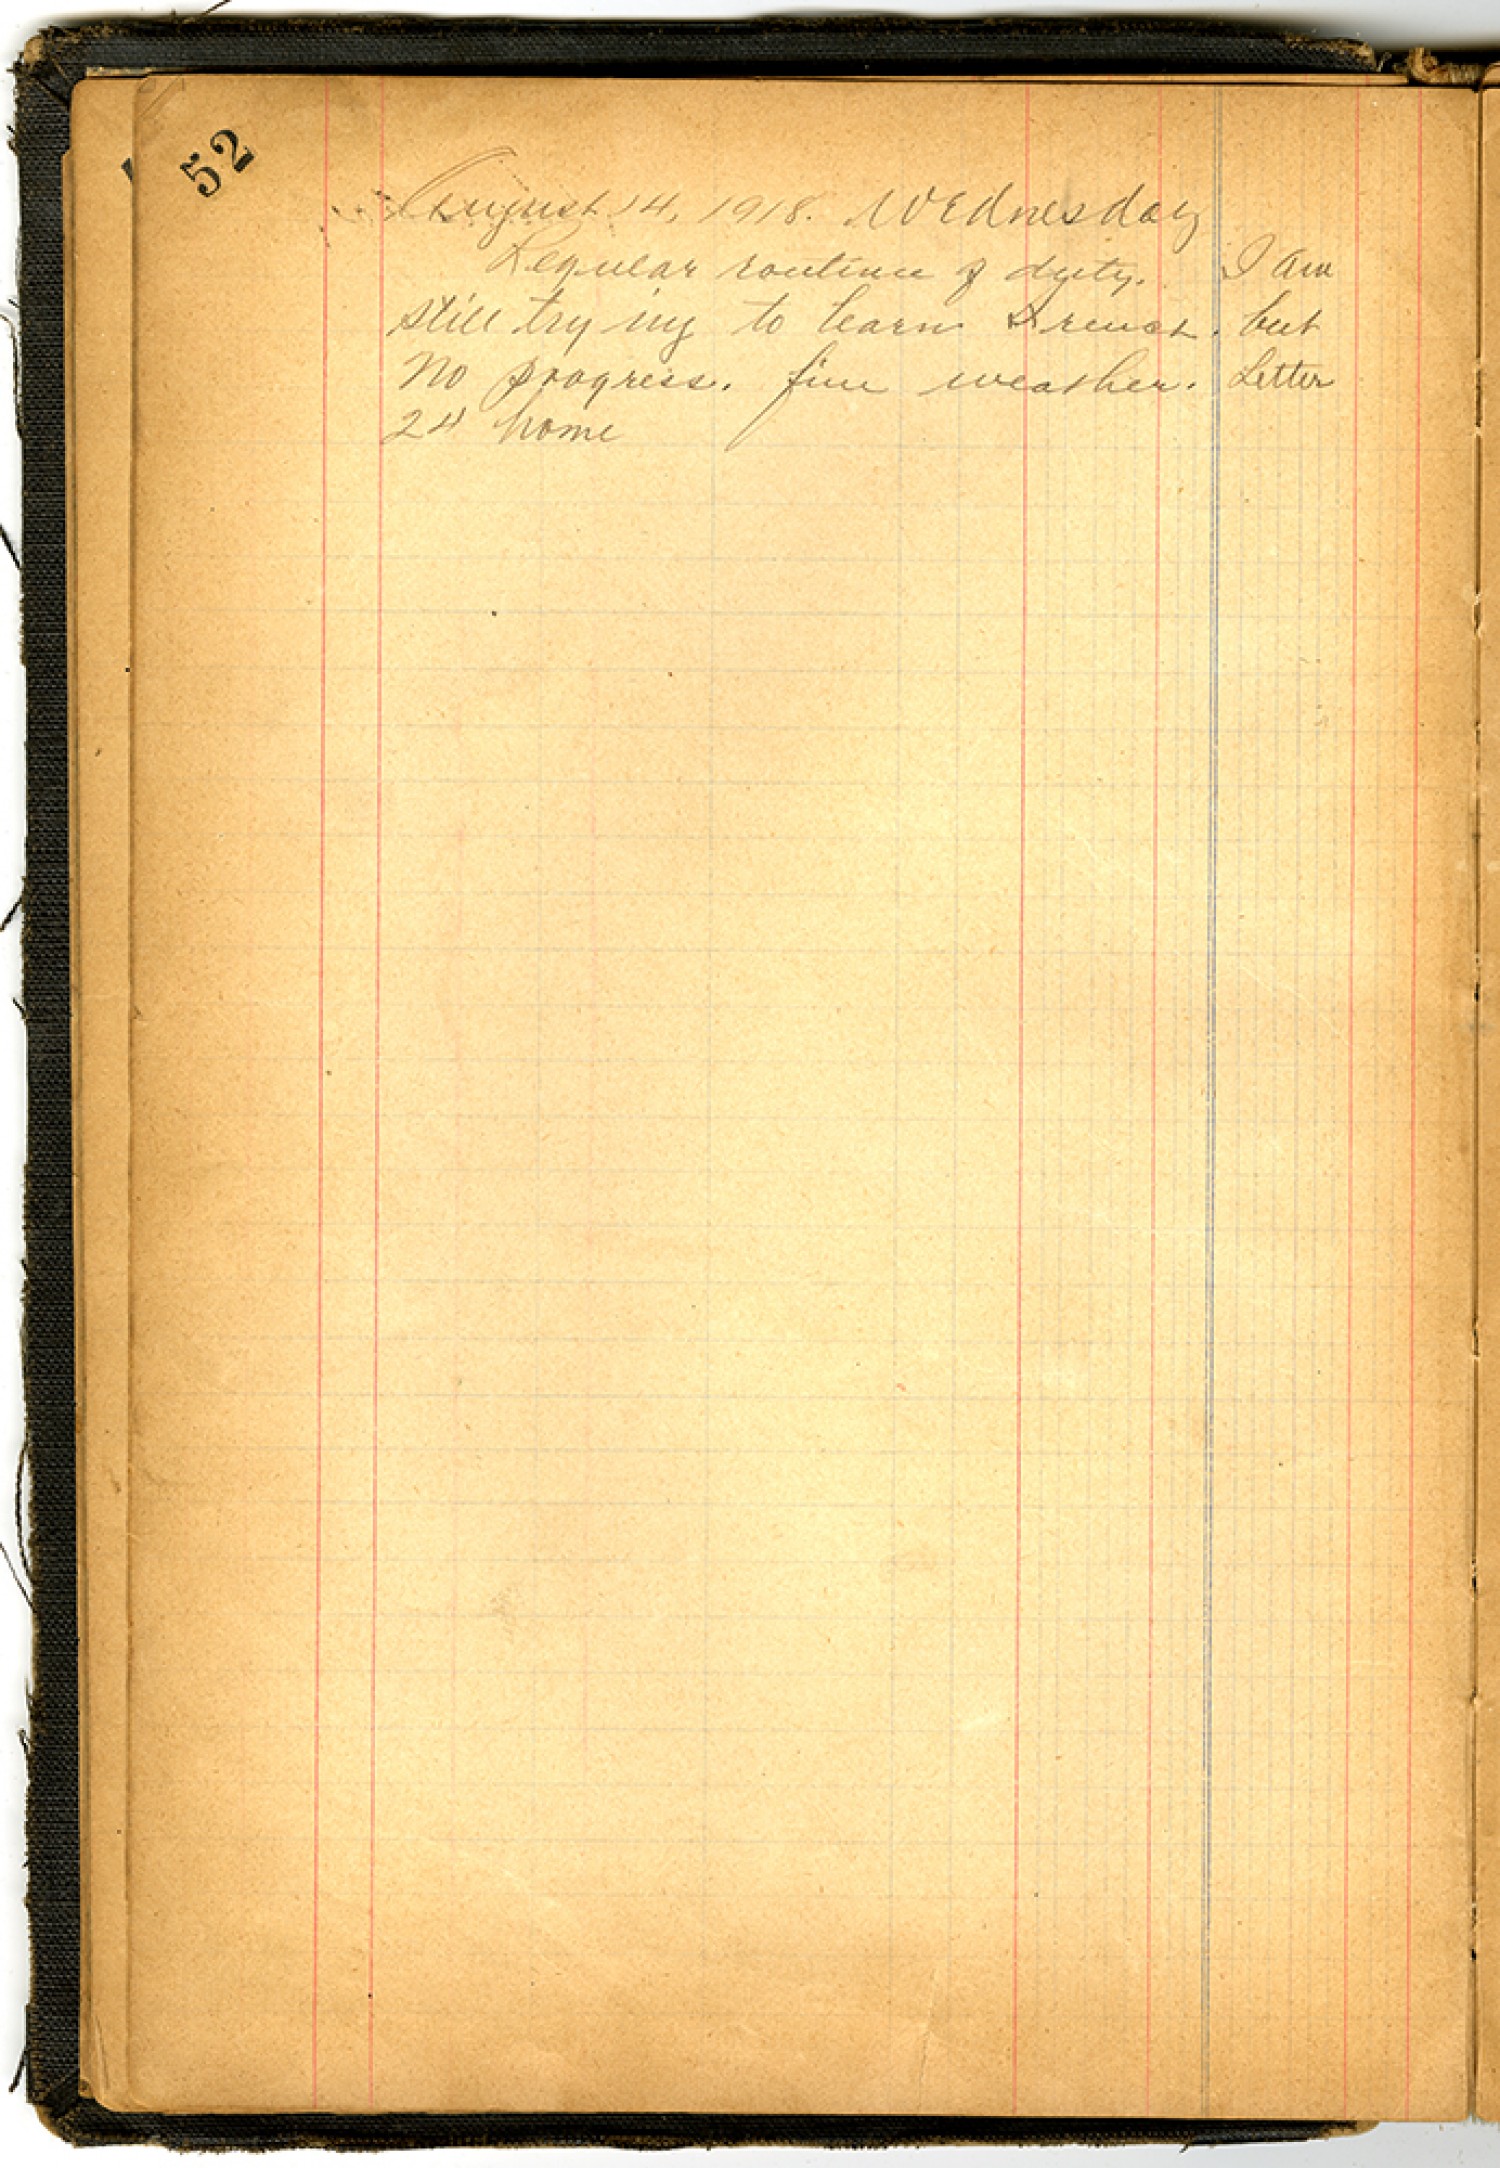 52
August 14, 1918. Wednesday
Regular routine of duty. I am
still trying to learn French. but
No progress. fine weather. Letter
24 home